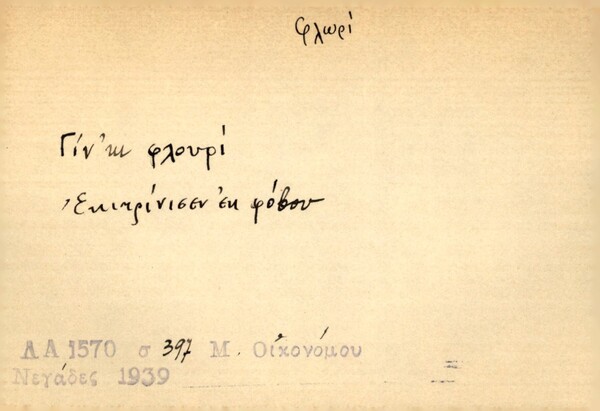 Φλωρί
Γίν'κι φλουρί
Ἐκιτρίνισεν ἐκ φόβου
ΛΑ 1570 σ 397 Μ. Οἰκονόμου
Νεγάδες 1939